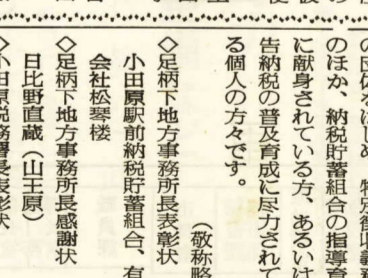 の団体をはじめ、特別徴収義務
のほか、納税貯蓄組合の指導育
に献身されている方、あるいは
告納税の普及育成に尽力されて
る個人の方々です。
（敬称略
◇足柄下地方事務所長表彰状
小田原駅前納税貯蓄組合、有
会社松琴楼
◇足柄下地方事務所長感謝状
日比野直蔵（山王原）
◇小田原税務署長表彰状